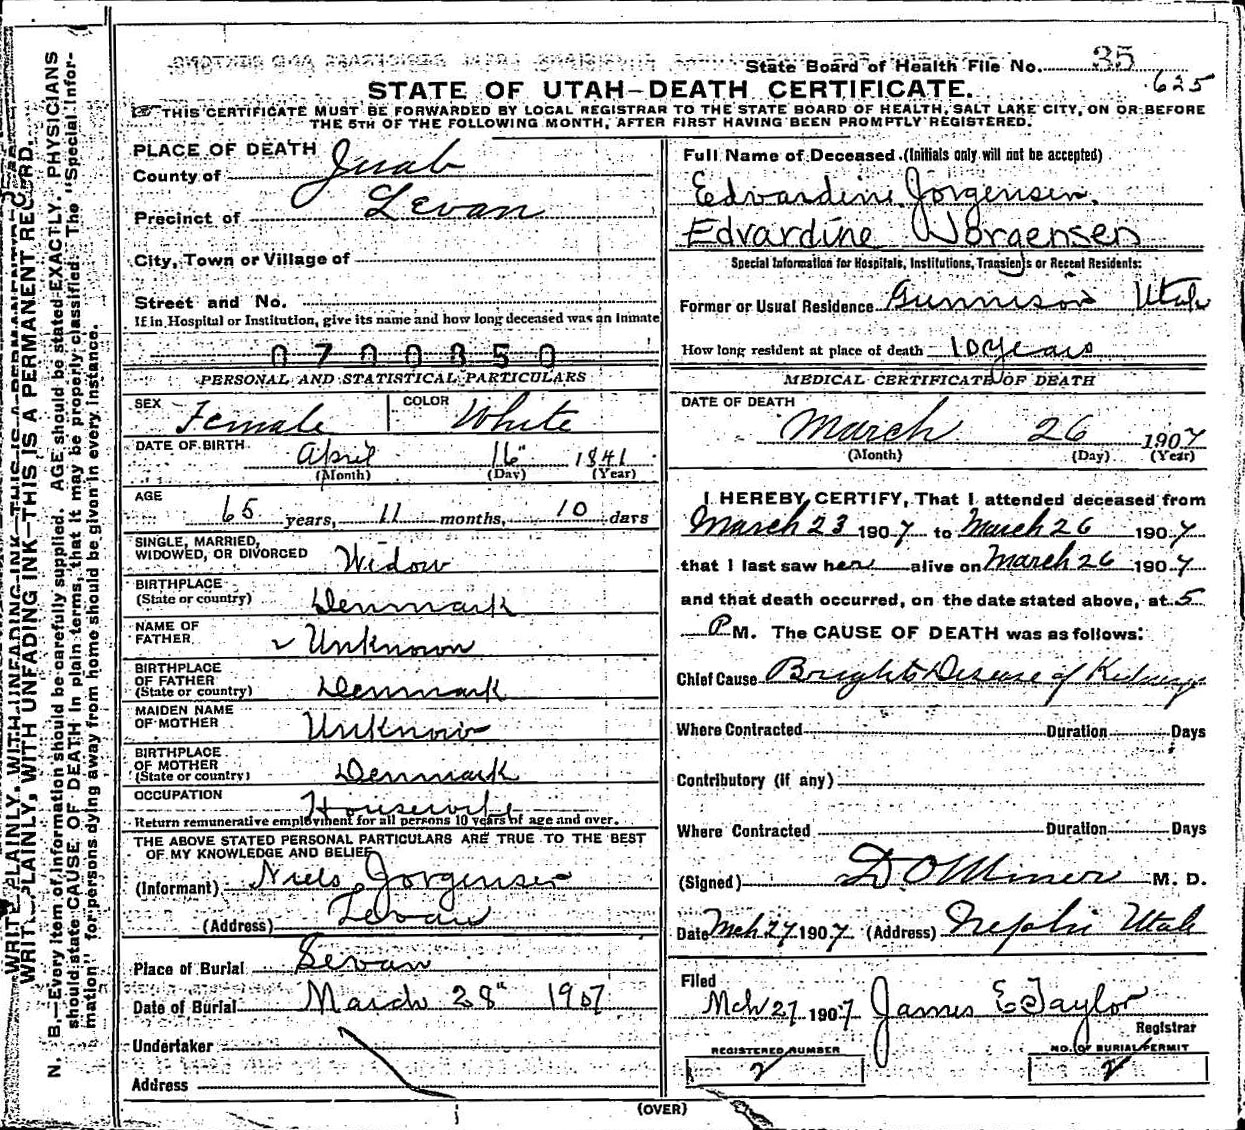 State Board of Health File No. 35
625
STATE OF UTAH—DEATH CERTIFICATE.
THIS CERTIFICATE MUST BE FORWARDED BY LOCAL REGISTRAR TO THE STATE BOARD OF HEALTH, SALT LAKE CITY, ON OR BEFORE
THE 5TH OF THE FOLLOWING MONTH, AFTER FIRST HAVING BEEN PROMPTLY REGISTERED.
PLACE OF DEATH
County of Juab
Precinct of Levan
City, Town or Village of
Street and No.
If in Hospital or Institution, give its name and how long deceased was an inmate
0700850
PERSONAL AND STATISTICAL PARTICULARS
SEX Female COLOR White
DATE OF BIRTH April 16" 1841
(Month) (Day) (Year)
AGE
65 years, 11 months, 10 days
SINGLE, MARRIED,
WIDOWED, OR DIVORCED Widow
BIRTHPLACE
(State or country) Denmark
NAME OF
FATHER Unknown
BIRTHPLACE
OF FATHER
(State or country) Denmark
MAIDEN NAME
OF MOTHER Unknow
BIRTHPLACE
OF MOTHER
(State or country) Denmark
OCCUPATION Housewife
Return remunerative employment for all persons 10 years of age and over.
THE ABOVE STATED PERSONAL PARTICULARS ARE TRUE TO THE BEST
OF MY KNOWLEDGE AND BELIEF
(Informant) Niels Jorgensen
(Address) Levan
Place of Burial Levan
Date of Burial March 28" 1907
Undertaker
Address
Full Name of Deceased (Initials only will not be accepted)
Edvardine Jorgensen.
Edvardine Jorgensen
Special Information for Hospitals, Institutions, Transients or Recent Residents:
Former or Usual Residence Gunnison Utah
How long resident at place of death 10 years
MEDICAL CERTIFICATE OF DEATH
DATE OF DEATH
March 26 1907
(Month) (Day) (Year)
I HEREBY CERTIFY, That I attended deceased from
March 23 1907 to March 26 1907
that I last saw her alive on March 26 1907
and that death occurred, on the date stated above, at 5
P M. The CAUSE OF DEATH was as follows:
Chief Cause Brights Disease of Kidneys
Where Contracted Duration Days
Contributory (if any)
Where Contracted Duration Days
(Signed) D. O. Miner M. D.
Date Mch 27 1907 (Address) Nephi Utah
Filed
Mch 27 1907 James E Taylor
Registrar
REGISTERED NUMBER
2
NO. OF BURIAL PERMIT
2
(OVER)
WRITE PLAINLY, WITH UNFADING INK—THIS IS A PERMANENT RECORD.
N. B.—Every item of information should be carefully supplied. AGE should be stated EXACTLY. PHYSICIANS
should state CAUSE OF DEATH in plain terms, that it may be properly classified. The "Special Infor-
mation" for persons dying away from home should be given in every instance.